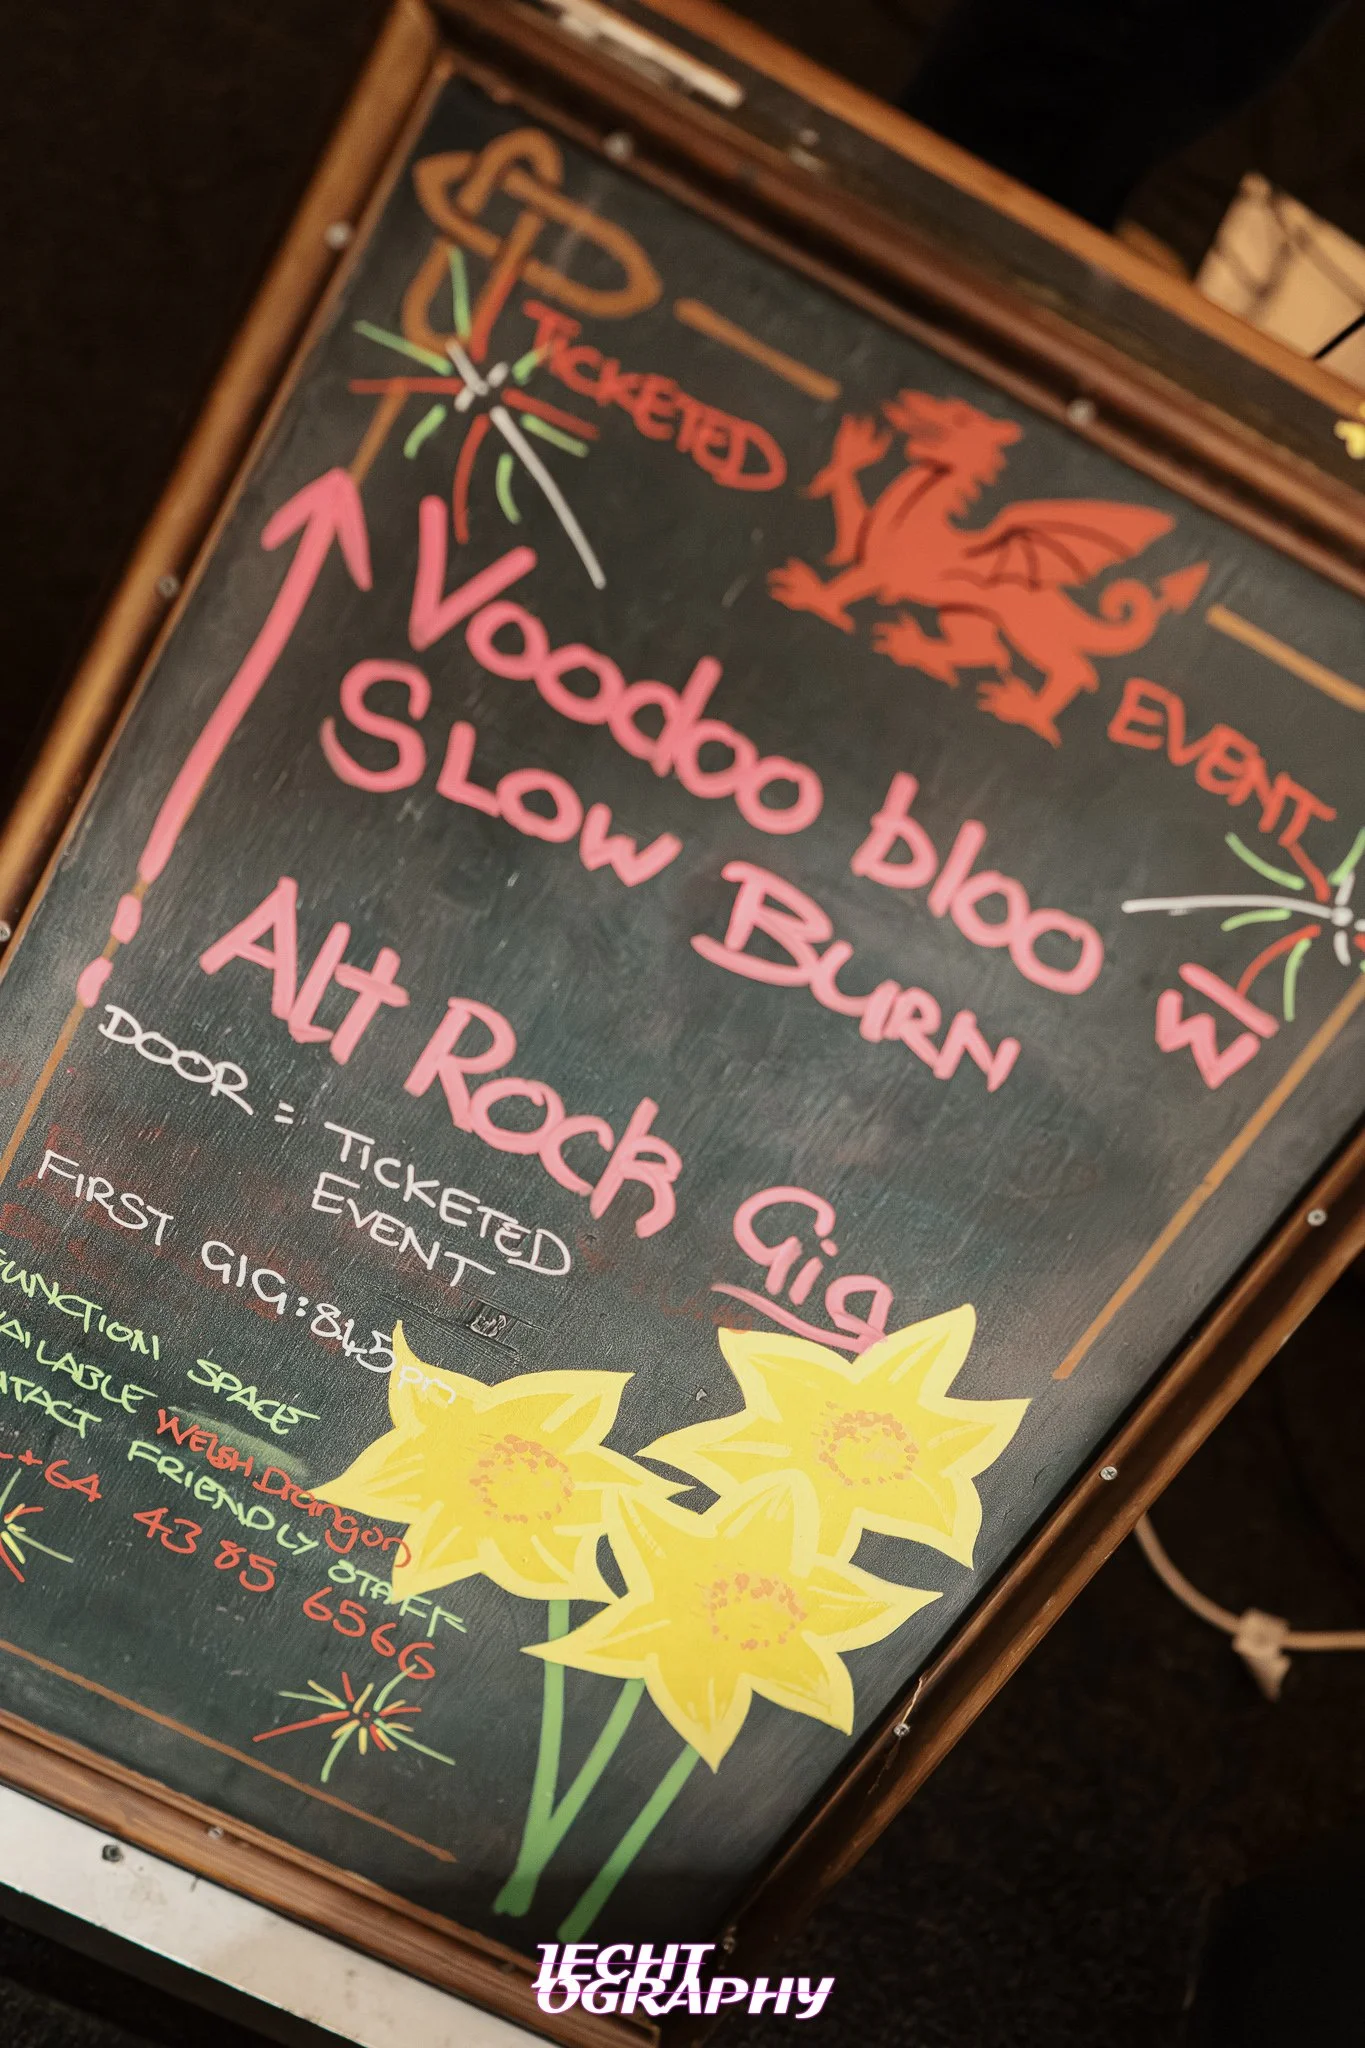 TICKETED
EVENT
Voodoo bloo w
SLOW BURN
Alt Rock Gig
DOOR = TICKETED
EVENT
FIRST GIG: 845pm
FUNCTION SPACE
AILABLE WELSH Drangon
TACT FRIENDLY STAFF
+64 43 85 6566
1ECHT
OGRAPHY